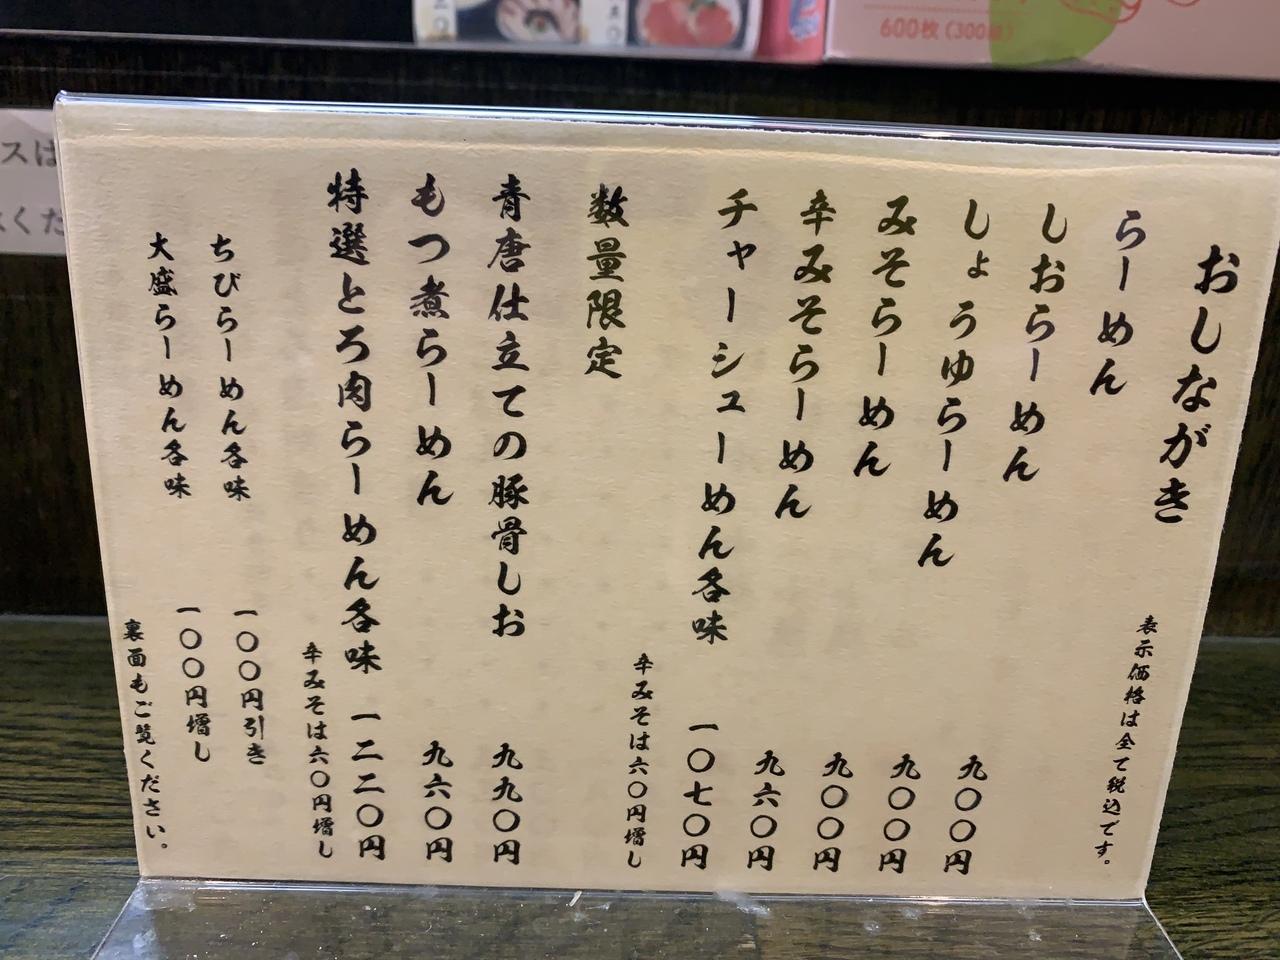 おしながき
表示価格は全て税込です。
らーめん
しおらーめん 九〇〇円
しょうゆらーめん 九〇〇円
みそらーめん 九〇〇円
辛みそらーめん 九六〇円
チャーシューめん各味 一〇七〇円
辛みそは六〇円増し
数量限定
青唐仕立ての豚骨しお 九九〇円
もつ煮らーめん 九六〇円
特選とろ肉らーめん各味 一二二〇円
辛みそは六〇円増し
ちびらーめん各味 一〇〇円引き
大盛らーめん各味 一〇〇円増し
裏面もご覧ください。
600枚(300組)
スは
くだ